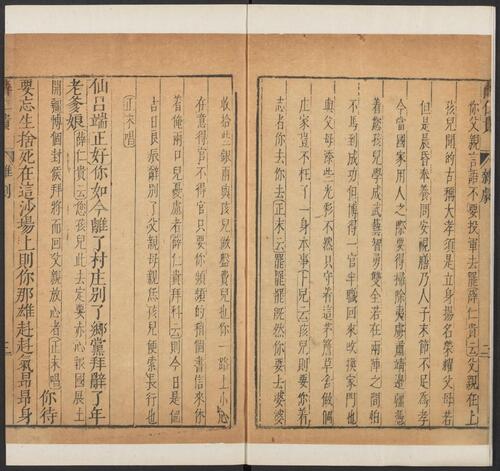 你父親言語不要投軍去罷薛仁貴云父親在上
孩兒聞的古稱大孝須是立身揚名榮耀父母若
但是晨昏奉養問安視膳乃人子末節不足為孝
今當國家用人之際要得掃除夷虜肅靖邊疆憑
着您孩兒學成武藝智勇雙全若在兩陣之間怕
不馬到成功但博得一官半職回來改換家門也
與父母添些光彩不然只守着這茅簷草舍做個
庄家豈不枉了一身本事卜兒云孩兒則要你着
志者你去你去正末云罷罷罷既然你要去婆婆
收拾些銀兩與孩兒做盤費兒也你一路上小心
在意得官不得官只要你頻頻的稍個書信來休
着俺兩口兒憂慮者薛仁貴拜科云則今日是個
吉日良辰辭別了父親母親您孩兒便索長行也
正末唱
仙呂端正好你如今離了村庄別了鄉黨拜辭了年
老爹娘薛仁貴云您孩兒此去定要赤心報國展土
開疆博個封侯拜將而回父親放心者正末唱你待
要忘生捨死在這沙場上則你那雄赳赳氣昂昂身